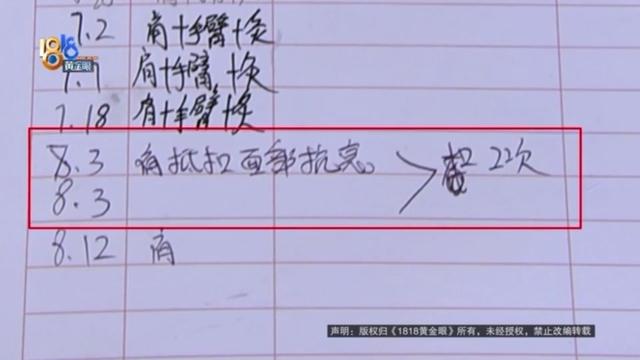 1818
黄金眼
7.2 肩+手臂+灸
7.7 肩+手臂+灸
7.18 肩+手臂+灸
8.3 肩抵扣面部抗衰 扣22次
8.3
8.12 肩
声明：版权归《1818黄金眼》所有，未经授权，禁止改编转载